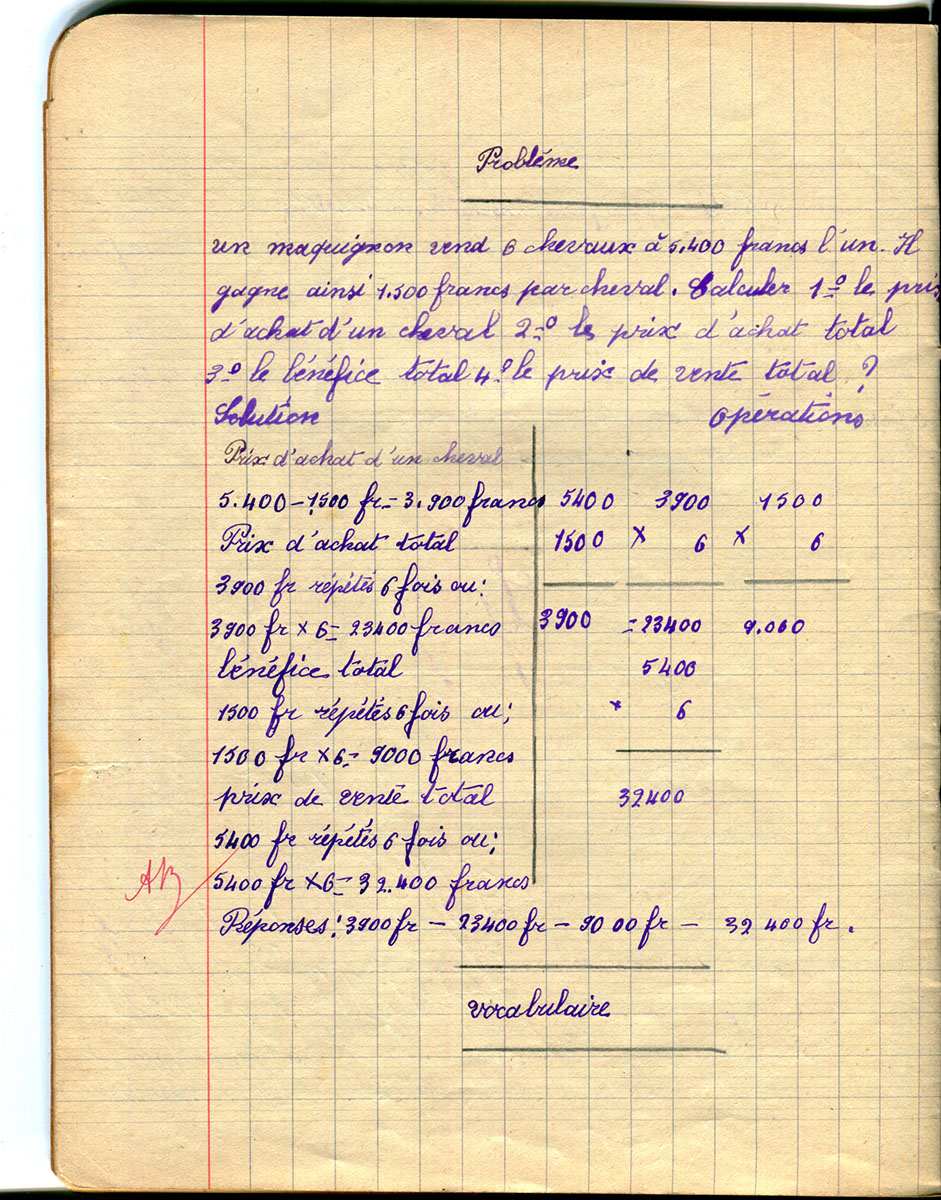 Problème
un maquignon vend 6 chevaux à 5.400 francs l'un. Il
gagne ainsi 1.500 francs par cheval. Calculer 1º le prix
d'achat d'un cheval 2º le prix d'achat total
3º le bénéfice total 4º le prix de vente total ?
Solution Opérations
Prix d'achat d'un cheval
5.400 - 1500 fr = 3.900 francs 5400 3900 1500
Prix d'achat total 1500 × 6 × 6
3900 fr répétés 6 fois ou:
3900 fr × 6 = 23400 francs 3900 = 23400 9.000
bénéfice total 5400
1500 fr répétés 6 fois ou; × 6
1500 fr × 6 = 9000 francs
prix de vente total 32400
5400 fr répétés 6 fois ou;
AB 5400 fr × 6 = 32.400 francs
Réponses: 3900 fr - 23400 fr - 9000 fr - 32 400 fr.
vocabulaire